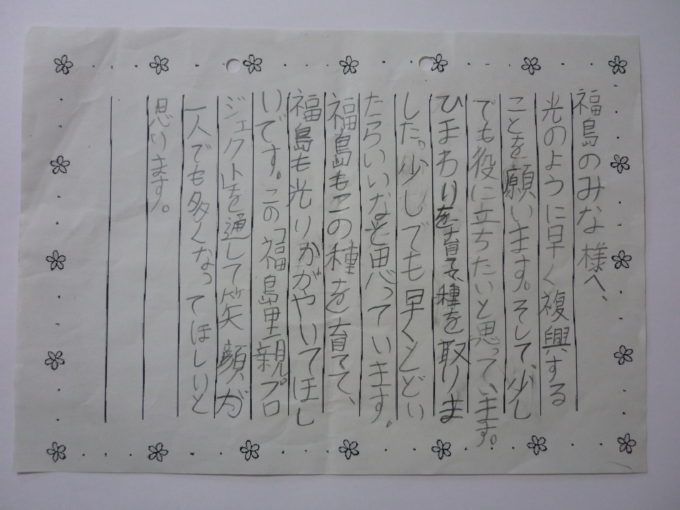 福島のみな様へ、
光のように早く複興する
ことを願います。そして、少し
でも役に立ちたいと思っています。
ひまわりを育て、種を取りま
した。少しでも早くとどい
たらいいなと思っています。
福島もこの種を育てて、
福島も光りかがやいてほし
いです。この「福島里親プロ
ジェクト」を通して笑顔が
一人でも多くなってほしいと
思います。